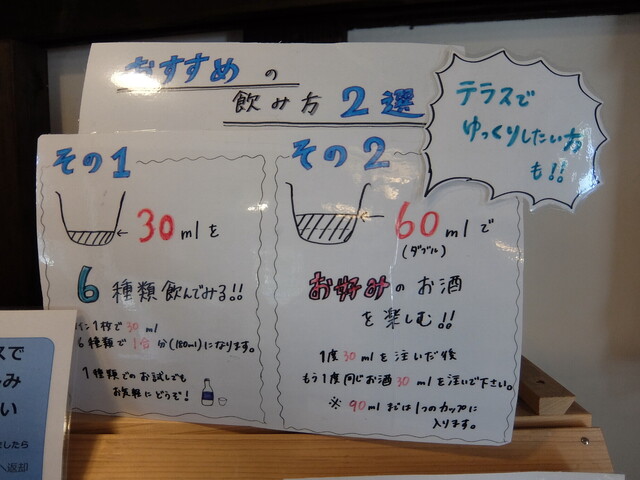 おすすめ の
飲み方 2選
テラスで
ゆっくりしたい方
も!!
その1
30mlを
6種類飲んでみる!!
イン1枚で30ml
6種類で1合分(180ml)になります。
1種類でのお試しでも
お気軽にどうぞ!
その2
60mlで
(ダブル)
お好みのお酒
を楽しむ!!
1度30mlを注いだ後
もう1度同じお酒30mlを注いで下さい。
※90mlまでは1つのカップに
入ります。
スで
み
い
したら
へ返却